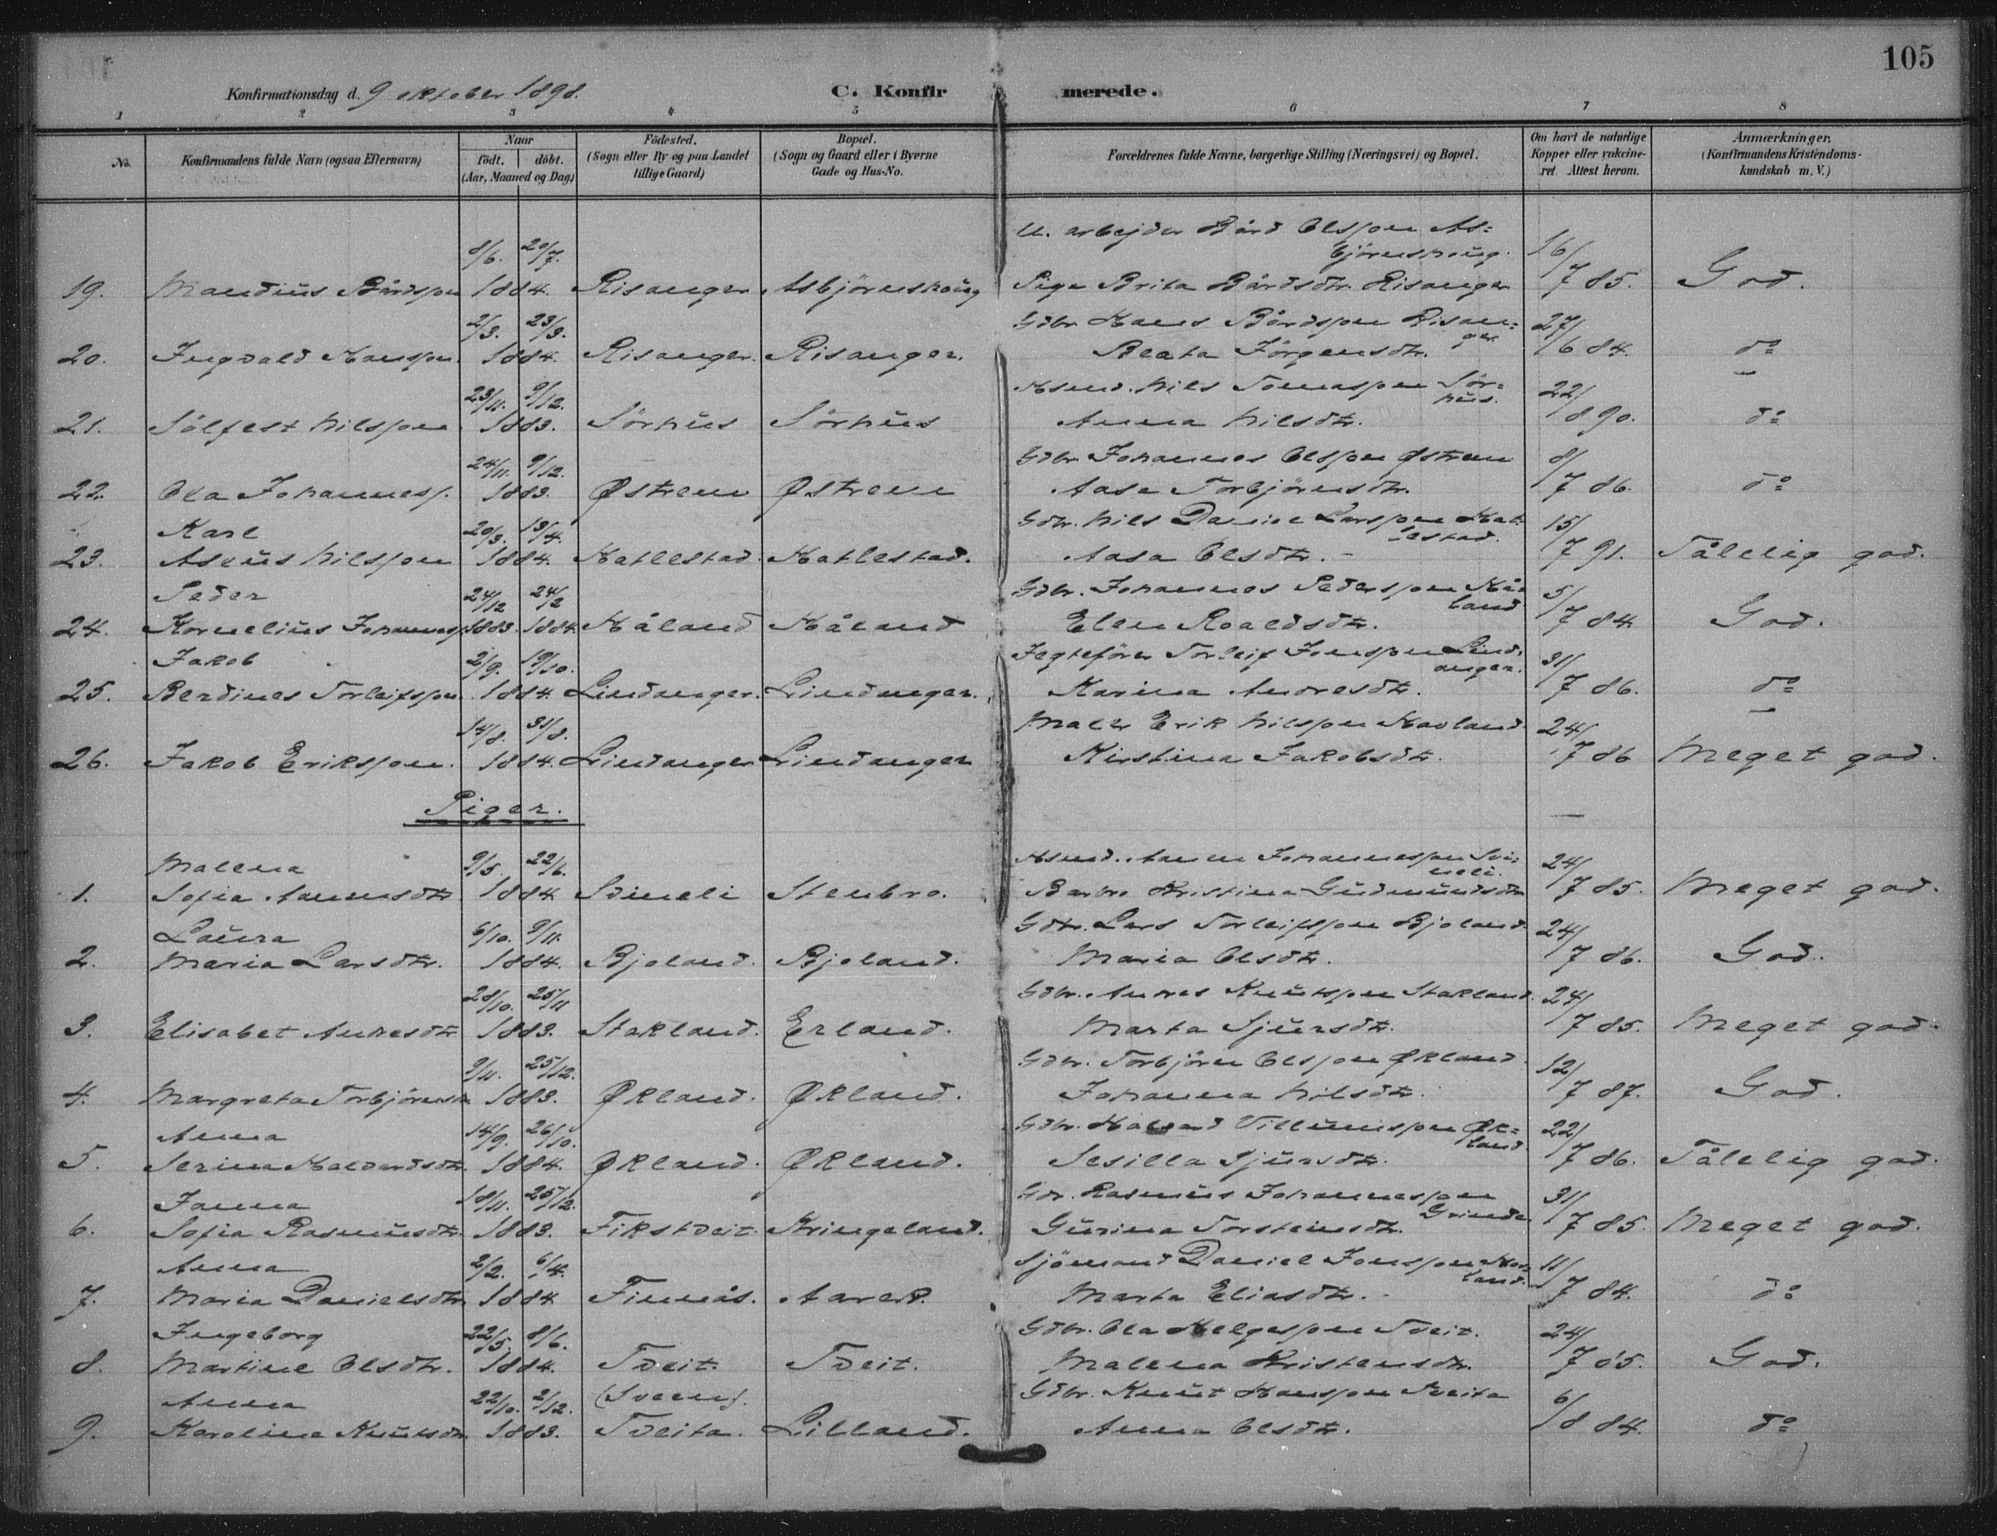 105
Konfirmationsdag d. 9 oktober 1898. C. Konfirmerede.
1 2 3 4 5 6 7 8
No. Konfirmandens fulde Navn (ogsaa Efternavn) Naar födt. döbt. (Aar, Maaned og Dag) Födested. (Sogn eller By og paa Landet tillige Gaard) Bopæl. (Sogn og Gaard eller i Byerne Gade og Hus-No. Forældrenes fulde Navne, borgerlige Stilling (Næringsvei) og Bopæl. Om havt de naturlige Kopper eller vakcineret. Attest herom. Anmærkninger, (Konfirmandens Kristendomskundskab m. V.)
8/6. 20/7. U. arbejder Bård Olsson Asbjörnshaug. 16/
19. Mandius Bårdsson 1884. Risanger Asbjörnshaug Pige Brita Bårdsdtr. Risanger 7 85. God.
2/3. 23/3. Gdbr. Hans Bårdsson Risanger 27/
20. Ingvald Hansson. 1884. Risanger. Risanger. Beata Jörgensdtr. 6 84. do
23/11. 9/12. Husmd. Nils Tomasson Sörhus. 22/
21. Sölfest Nilsson 1883. Sörhus Sörhus Anna Nilsdtr. 8 90. do
24/11. 9/12. Gdbr. Johannes Olsson Østrem 8/
22. Ola Johanness. 1883. Østrem Østrem Aasa Torbjörnsdtr. 7 86. do
Karl 20/3. 13/4. Gdbr. Nils Daniel Larsson Hatlestad. 15/
23. Aseus Nilsson 1884. Hatlestad. Hatlestad. Aasa Olsdtr. 7 91. Tålelig god.
Peder 24/12 24/2 Gdbr. Johannes Pedersson Håland 5/
24. Kornelius Johanness. 1883. 1884. Håland Håland Ellen Roaldsdtr. 7 84. God.
Jakob 2/9. 19/10. Jegtefører Torleif Jonsson Lindanger. 31/
25. Berdines Torleifsson. 1884. Lindanger. Lindanger. Karina Andresdtr. 7 86. do
14/8. 31/8. Maler Erik Nilsson Havland 24/
26. Jakob Eriksson. 1884. Lindanger Lindanger Kirstina Jakobsdtr. 7 86 Meget god.
Piger.
Malena 9/5. 22/6. Husmd. Aanen Johannesson Svineli. 24/
1. Sofia Aanensdtr 1884. Svineli Stenbro. Barbro Kristina Gudmundsdtr 7 85. Meget god.
Laura 6/10. 9/11. Gdbr. Lars Torleifsson Bjoland. 24/
2. Maria Larsdtr. 1884. Bjoland. Bjoland. Maria Olsdtr. 7 86. God.
28/10. 25/11 Gdbr. Andres Knutsson Stakland. 24/
3. Elisabet Andresdtr 1883. Stakland. Erland. Marta Sjursdtr. 7 85. Meget god.
9/11. 25/12. Gdbr. Torbjörn Olsson Økland. 12/
4. Margreta Torbjörnsdtr. 1883. Økland. Økland. Johanna Nilsdtr. 7 87. God.
Anna 14/9. 26/10. Gdbr. Halvard Villumsson Økland. 22/
5. Serina Halvardsdtr 1884. Økland. Økland. Sesilla Sjursdtr. 7 86. Tålelig god.
Janna 18/11. 25/12. Gdbr. Rasmus Johannesson Grinde 31/
6. Sofia Rasmusdtr. 1883. Fikstveit. Kringeland. Gurina Torsteinsdtr. 7 85. Meget god.
Anna 2/2. 6/4. Sjömand Daniel Jonsson Havland. 11/
7. Maria Danielsdtr 1884. Finnås. Aarek. Marta Eliasdtr. 7 84. do
Ingeborg 22/5. 8/6. Gdbr. Ola Helgesson Tveit. 24/
8. Martine Olsdtr. 1884. Tveit. Tveit. Malena Kristensdtr. 7 85. God.
Anna 22/10. 2/12. (Sveen). Gdbr. Knut Hansson Tveita 6/
9. Karolina Knutsdtr. 1883. Tveita. Lilland. Anna Olsdtr. 8 84. do